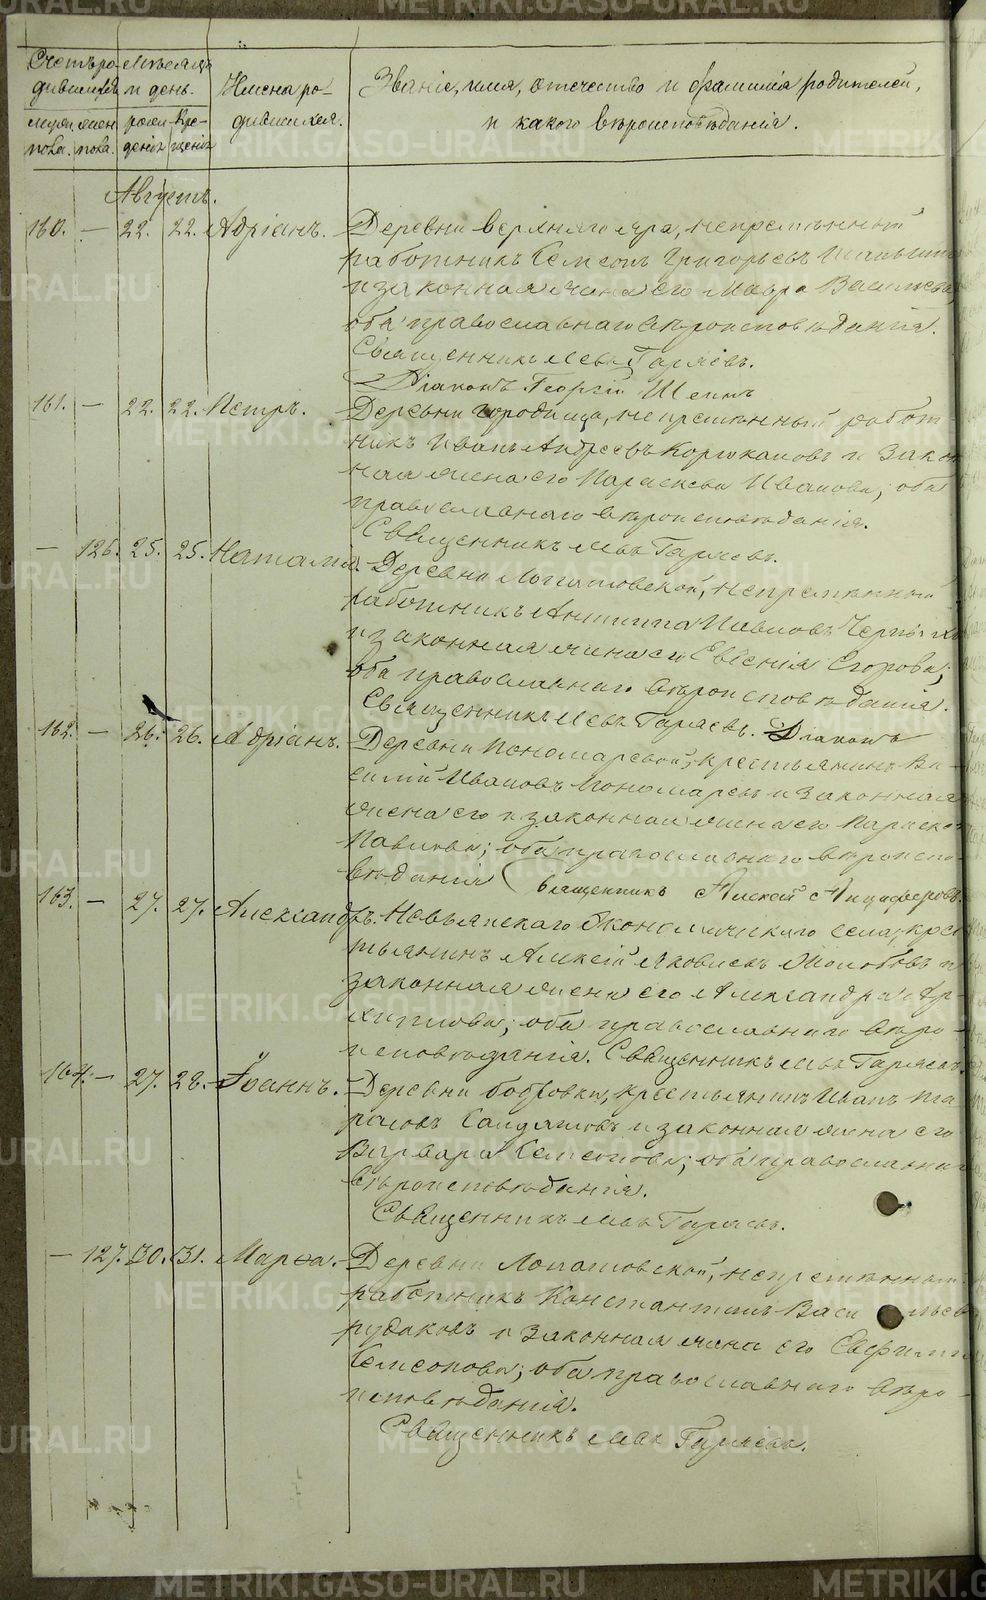 Счетъ ро- Мѣсяцъ
дившихся и день. Имена ро- Званіе, имя, отчество и фамилія родителей,
муж. жен. рож- кре- дившихся. и какого вѣроисповѣданія.
пола. пола. денія щенія
Августъ.
160. — 22. 22. Адріанъ. Деревни Верхняго яра, непремѣнный
работникъ Самсонъ Григорьевъ
и законная жена его Мавра Васильева
оба православнаго вѣроисповѣданія.
Священникъ Левъ Гаряевъ.
Діаконъ Георгій
161. — 22. 22. Петръ. Деревни Городища, непремѣнный работ-
никъ Иванъ Андреевъ Корюкаловъ и закон
ная жена его Параскева Иванова; оба
православнаго вѣроисповѣданія.
Священникъ Левъ Гаряевъ.
— 126. 25. 25. Наталія. Деревни Лопатовской, непремѣнный
работникъ Антипа Павловъ Черныхъ
и законная жена его Евгенія Егорова;
оба православнаго вѣроисповѣданія.
Священникъ Левъ Гаряевъ. Діаконъ
162. — 26. 26. Адріанъ. Деревни Пономаревой, крестьянинъ Ва-
силій Ивановъ Пономаревъ и законная
жена его и законная жена его Параскева
Павлова; оба православнаго вѣроиспо-
вѣданія Священникъ Алексій Анциферовъ.
163. — 27. 27. Александръ. Невьянскаго Экономическаго села, крес
тьянинъ Алексій Яковлевъ Молобовъ и
законная жена его Александра Ар-
хиппова; оба православнаго вѣро-
исповѣданія. Священникъ Левъ Гаряевъ.
164. — 27. 28. Іоаннъ. Деревни Бобровки, крестьянинъ Иванъ Та
расовъ и законная жена его
Варвара Самсонова; оба православнаго
вѣроисповѣданія.
Священникъ Левъ Гаряевъ.
— 127. 30. 31. Марѳа. Деревни Лопатовской, непремѣнный
работникъ Константинъ Васильевъ
Рудаковъ и законная жена его Евфимія
Самсонова; оба православнаго вѣро-
исповѣданія.
Священникъ Левъ Гаряевъ.
METRIKI.GASO-URAL.RU